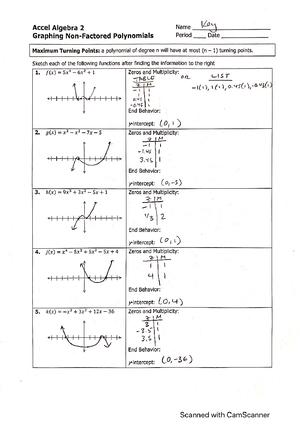 Accel Algebra 2
Graphing Non-Factored Polynomials
Name Key
Period Date
Maximum Turning Points: a polynomial of degree n will have at most (n – 1) turning points.
Sketch each of the following functions after finding the information to the right
1. f(x) = 5x⁴ – 6x² + 1
Zeros and Multiplicity:
TABLE OR LIST
Z M
-1 1
1 1
0.45 1
-0.45 1
-1(1), 1(1), 0.45(1), -0.45(1)
End Behavior:
y-intercept: (0,1)
2. g(x) = x³ – x² – 7x – 5
Zeros and Multiplicity:
Z M
-1 1
-1.45 1
3.45 1
End Behavior:
y-intercept: (0,-5)
3. h(x) = 9x³ + 3x² – 5x + 1
Zeros and Multiplicity:
Z M
-1 1
1/3 2
End Behavior:
y-intercept: (0,1)
4. j(x) = x⁴ – 5x³ + 5x² – 5x + 4
Zeros and Multiplicity:
Z M
1 1
4 1
End Behavior:
y-intercept: (0,4)
5.
Zeros and Multiplicity:
Z M
3 1
-3.5 1
3.5 1
End Behavior:
y-intercept: (0,-36)
Scanned with CamScanner